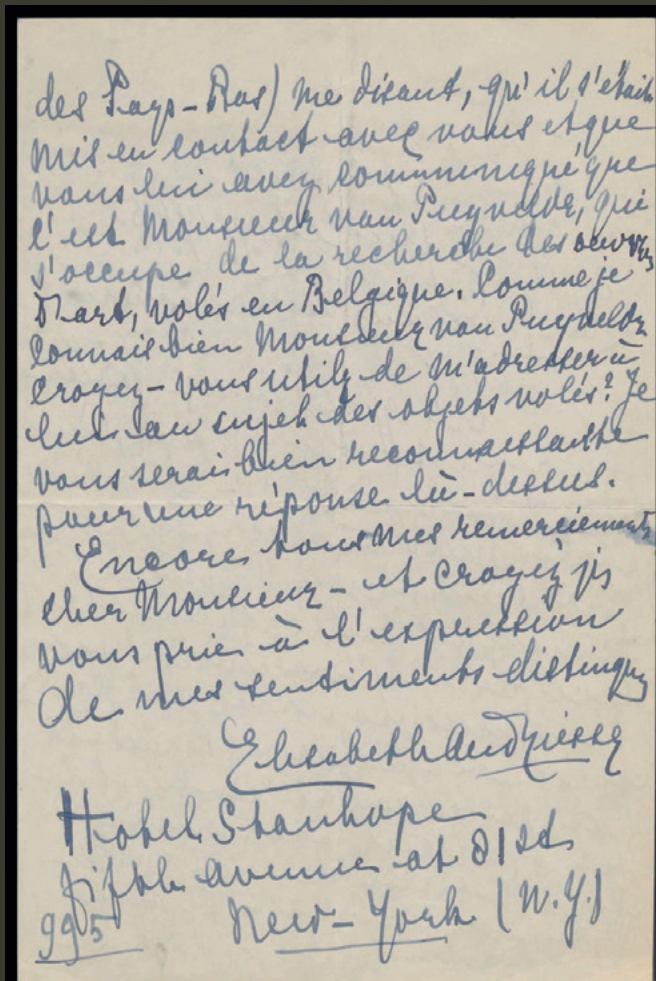 des Pays-Bas) me disant, qu'il s'était
mis en contact avec vous et que
vous lui avez communiqué que
c'est Monsieur van Puyvelde, qui
s'occupe de la recherche des oeuvres
d'art, volés en Belgique. Comme je
connais bien Monsieur van Puyvelde
croyez-vous utile de m'adresser à
lui au sujet des objets volés? Je
vous serais bien reconnaissante
pour une réponse là-dessus.
Encore tous mes remerciements
cher Monsieur - et croyez je
vous prie à l'expression
de mes sentiments distingués
Elisabeth Andriesse
Hotel Stanhope
fifth avenue at 81st
995 New-York (N.Y.)